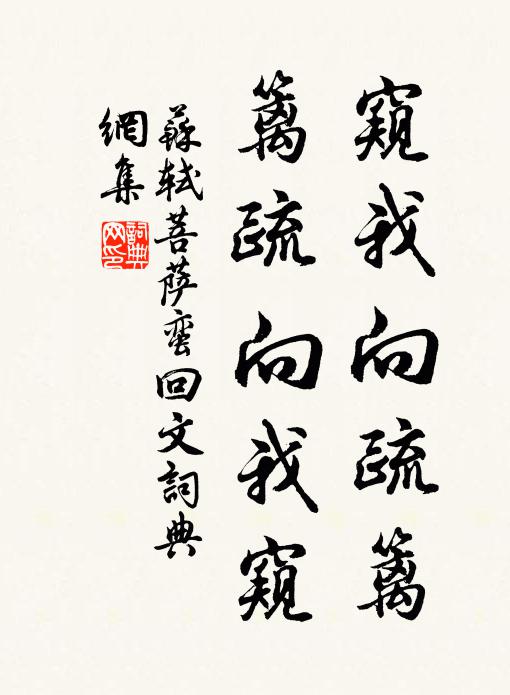 窺我向疏篱
篱疏向我窺
蘇軾菩萨蛮回文詞典
網集
詞典
网印